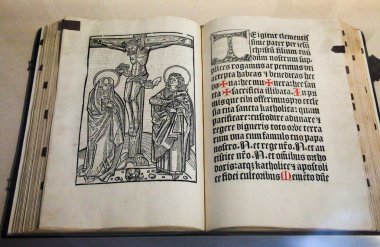 Te igitur clementiſ
ſime pater per ieſū
plices rogamus ac petimus uti
accepta habeas ⁊ bn̄dicas hec do
✠ na: hec mu ✠ nera: hec ſan
✠ ſacrificia illibata. In pri
mis que tibi offerimus pro eccle
ſia tua ſancta katholica: quam
pacificare: cuſtodire adunare ⁊
regere digneris toto orbe terra
rum una cum famulo tuo papa
noſtro .N. et rege nr̄o .N. et an
tiſtite nr̄o .N. et omnibus ortho
doxis: atqꝫ katholice ⁊ apoſtoli
ce fidei cultoribus Memēto dn̄e